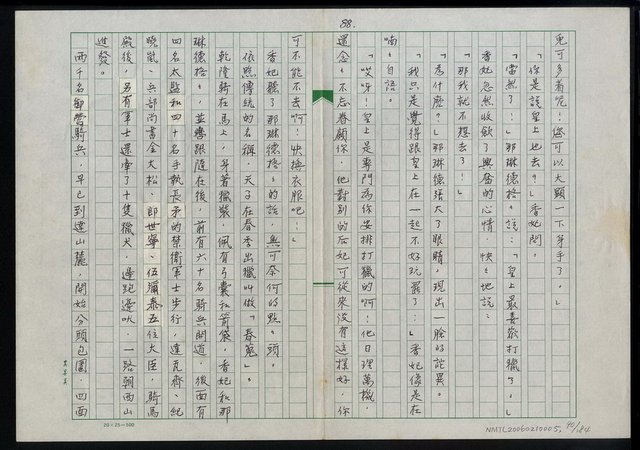 88.
兔可多着呢！您可以大顯一下身手了。」
「你是說皇上也去？」香妃問。
「當然了！」那琳德格。說：「皇上最喜歡打獵了。」
香妃忽然收歛了興奮的心情，怏怏地說：
「那我就不想去了！」
「為什麼？」那琳德張大了眼睛，現出一臉的詫異。
「我只是覺得跟皇上在一起不好玩罷了！」香妃像是在
喃喃自語。
「哎呀！皇上是專門為你安排打獵的啊！他日理萬機，
還念念不忘眷顧你，他對別的后妃可從來沒有這樣好，你
可不能不去啊！快換衣服吧！」
香妃聽了那琳德格的話，無可奈何的點點頭。
依照傳統的名稱，天子在春季出獵叫做「春蒐」。
乾隆騎在馬上，身著獵裝，佩有弓囊和箭袋，香妃和那
琳德格，並轡跟隨在後，前有六十名騎兵開道，後面有
四名太監和四十名手執長矛的禁衛軍士步行，達瓦齊、紀
曉嵐、兵部尚書金大松、郎世寧、伍彌泰五位大臣，騎馬
殿後，另有軍士還牽了十隻獵犬，邊跑邊吠，一路朝西山
進發。
兩千名御營騎兵，早已到達山麓，開始分頭包圍，四面
20×25=500
NMTL20060210005, 90/184